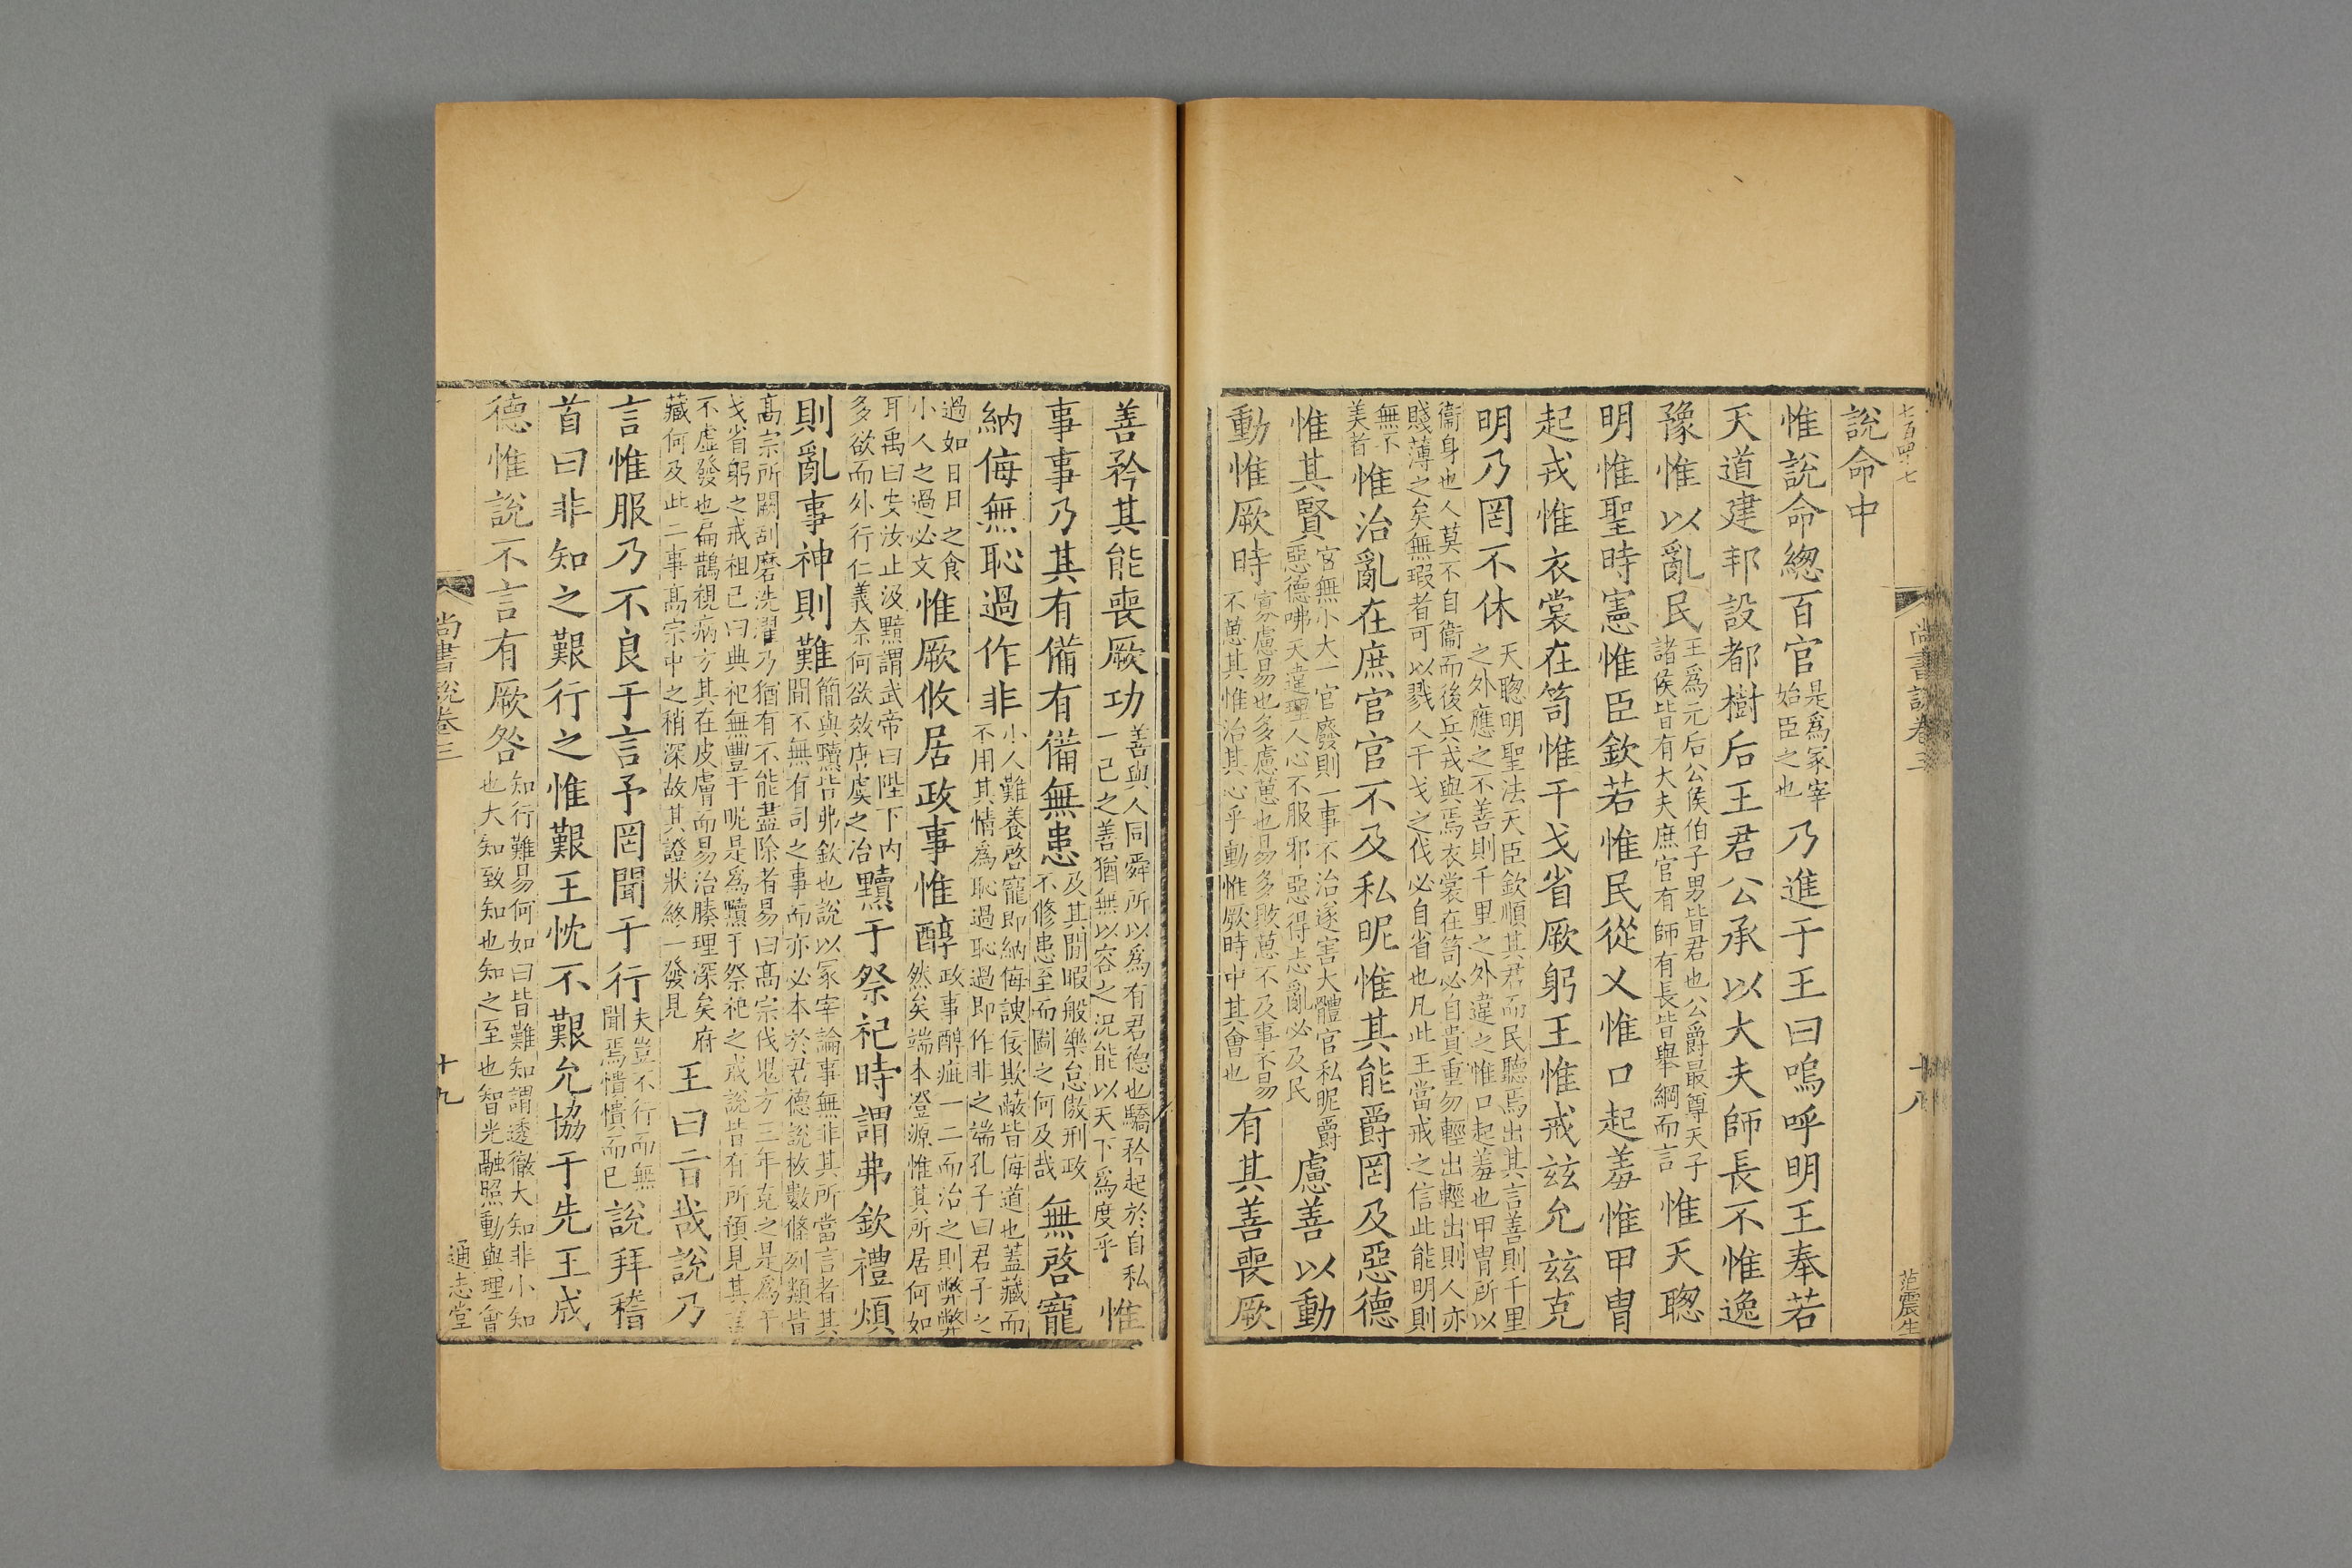 七百四十七
尚書說卷三
十八
范震生
說命中
惟說命緫百官是爲冢宰始臣之也乃進于王曰嗚呼明王奉若
天道建邦設都樹后王君公承以大夫師長不惟逸
豫惟以亂民王爲元后公侯伯子男皆君也公爵最尊天子諸侯皆有大夫庶官有師有長皆舉綱而言惟天聦
明惟聖時憲惟臣欽若惟民從乂惟口起羞惟甲冑
起戎惟衣裳在笥惟干戈省厥躬王惟戒玆允玆克
明乃罔不休天聦明聖法天臣欽順其君而民聽焉出其言善則千里之外應之不善則千里之外違之惟口起羞也甲冑所以
衞身也人莫不自衞而後兵戎與焉衣裳在笥必自貴重勿輕出輕出則人亦賤薄之矣無瑕者可以戮人干戈之伐必自省也凡此王當戒之信此能明則
無不美者惟治亂在庶官官不及私昵惟其能爵罔及惡德
惟其賢官無小大一官廢則一事不治遂害大體官私昵爵惡德咈天違理人心不服邪惡得志亂必及民慮善以動
動惟厥時寡慮易也多慮葸也易多敗葸不及事不易不葸其惟治其心乎動惟厥時中其會也有其善喪厥
善矜其能喪厥功善與人同舜所以爲有君德也驕矜起於自私一己之善猶無以容之況能以天下爲度乎惟
事事乃其有備有備無患及其閒暇般樂怠傲刑政不修患至而圖之何及哉無啓寵
納侮無恥過作非小人難養啓寵即納侮諛佞欺蔽皆侮道也蓋藏而不用其情爲恥過恥過即作非之端孔子曰君子之
過如日月之食小人之過必文惟厥攸居政事惟醇政事醇疵一二而治之則弊弊然矣端本澄源惟其所居何如
耳禹曰安汝止汲黯謂武帝曰陛下内多欲而外行仁義奈何欲效唐虞之治黷于祭祀時謂弗欽禮煩
則亂事神則難簡與黷皆弗欽也說以冢宰論事無非其所當言者其閒不無有司之事而亦必本於君德說枚數條列類皆
髙宗所闕刮磨洗濯乃猶有不能盡除者易曰髙宗伐鬼方三年克之是爲干戈省躬之戒祖己曰典祀無豐于昵是爲黷于祭祀之戒說皆有所預見其言
不虛發也扁鵲視病方其在皮膚而易治腠理深矣府藏何及此二事髙宗中之稍深故其證狀終一發見王曰旨哉說乃
言惟服乃不良于言予罔聞于行夫豈不行而無聞焉憒憒而已說拜稽
首曰非知之艱行之惟艱王忱不艱允協于先王成
德惟說不言有厥咎知行難易何如曰皆難知謂透徹大知非小知也大知致知也知之至也智光融照動與理會
尚書說卷三
十九
通志堂